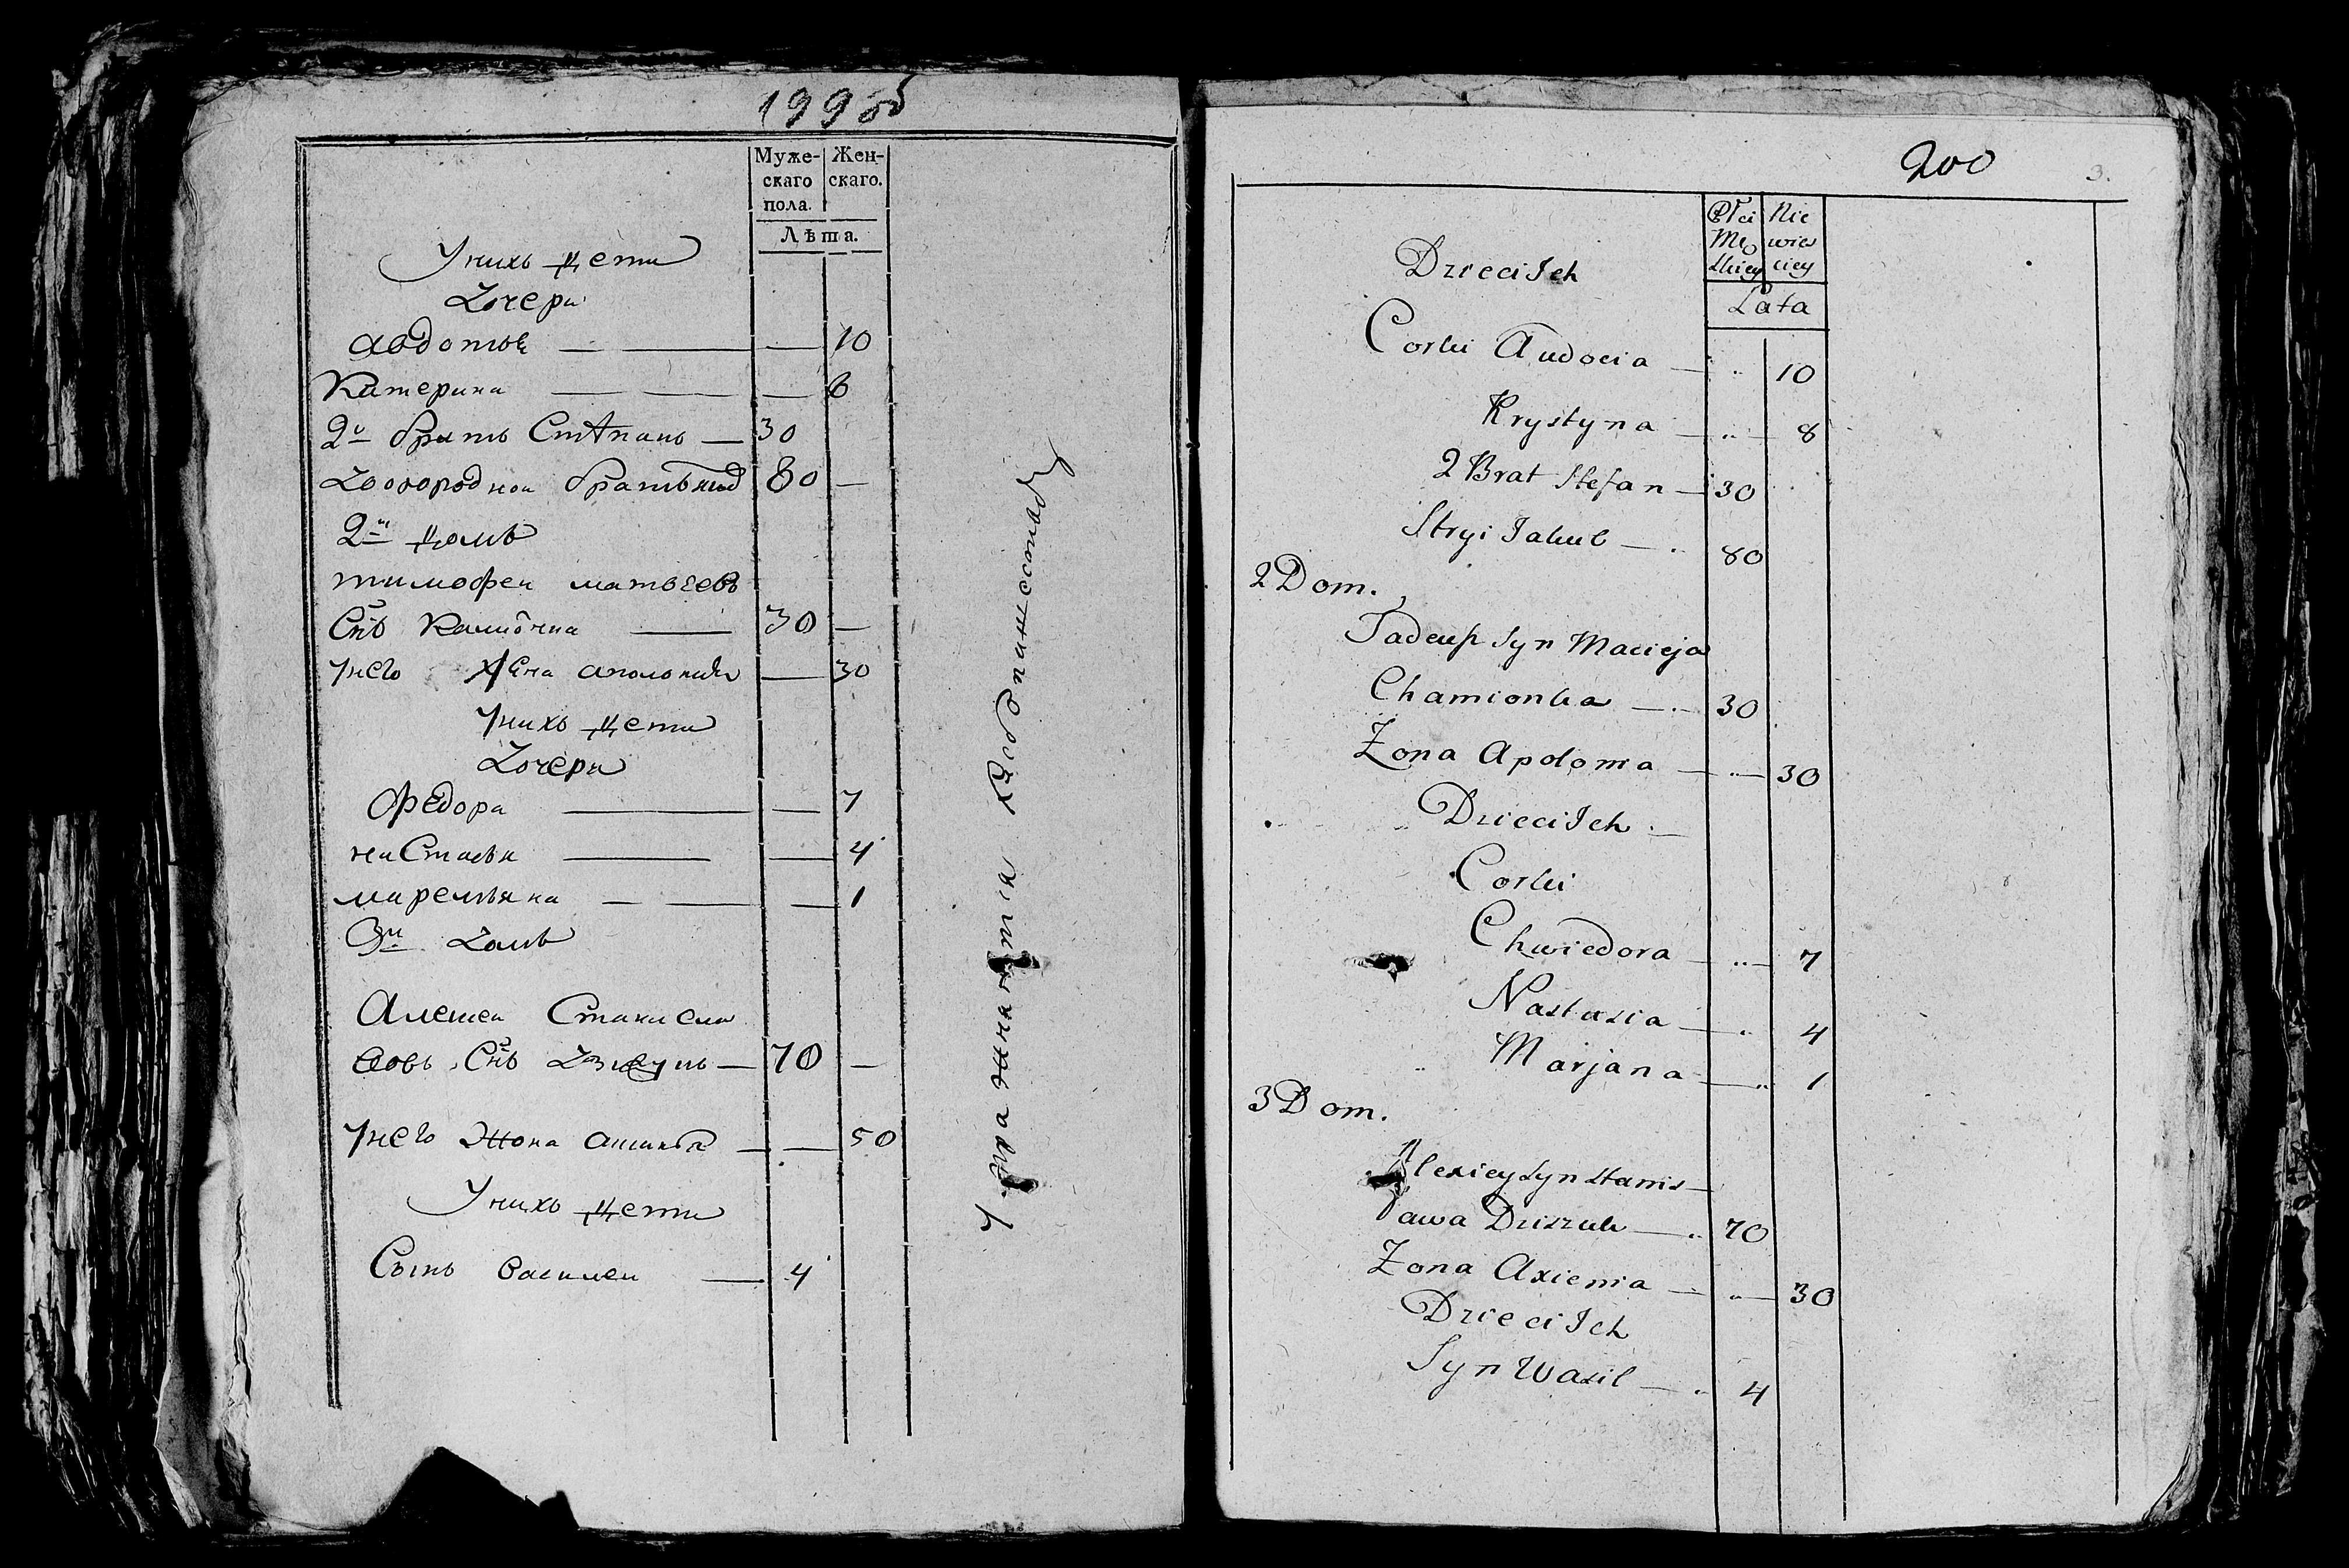 199об
Муже- Жен-
скаго скаго.
пола.
Лѣта.
У нихъ дети
Дочери
Авдотья — — 10
Катерина — —
2й братъ Стѣпанъ — 30
братъ 80 —
2й домъ
Тимофеи
Снъ — 30 —
У него жена Аполония — 30
У нихъ дети
Дочери
Федора — — 7
Настасья — — 4
Маремьяна — — 1
3й Домъ
Алексеи Станисла
вовъ Снъ — 70 —
У него жона — — 50
У нихъ дети
Сынъ Василеи — 4
200
3.
Płci Nie
Męz wies
kiey ciey
Lata
Dzieci Ich
Corki Audocia — " 10
Krystyna — " — 8
2 Brat Stefan — 30
Stryi Jakub — " 80
2 Dom.
Tadeusz Syn Macieja
Chamionka — " 30
Zona Apolonia — " — 30
Dzieci Ich —
Corki
Chwiedora — " — 7
Nastazia — " 4
Marjana — " 1
3 Dom.
Alexiey Syn Stanis—
ława Dziszuk — " 70
Zona Axienia — " — 30
Dzieci Ich
Syn Wasil — " 4